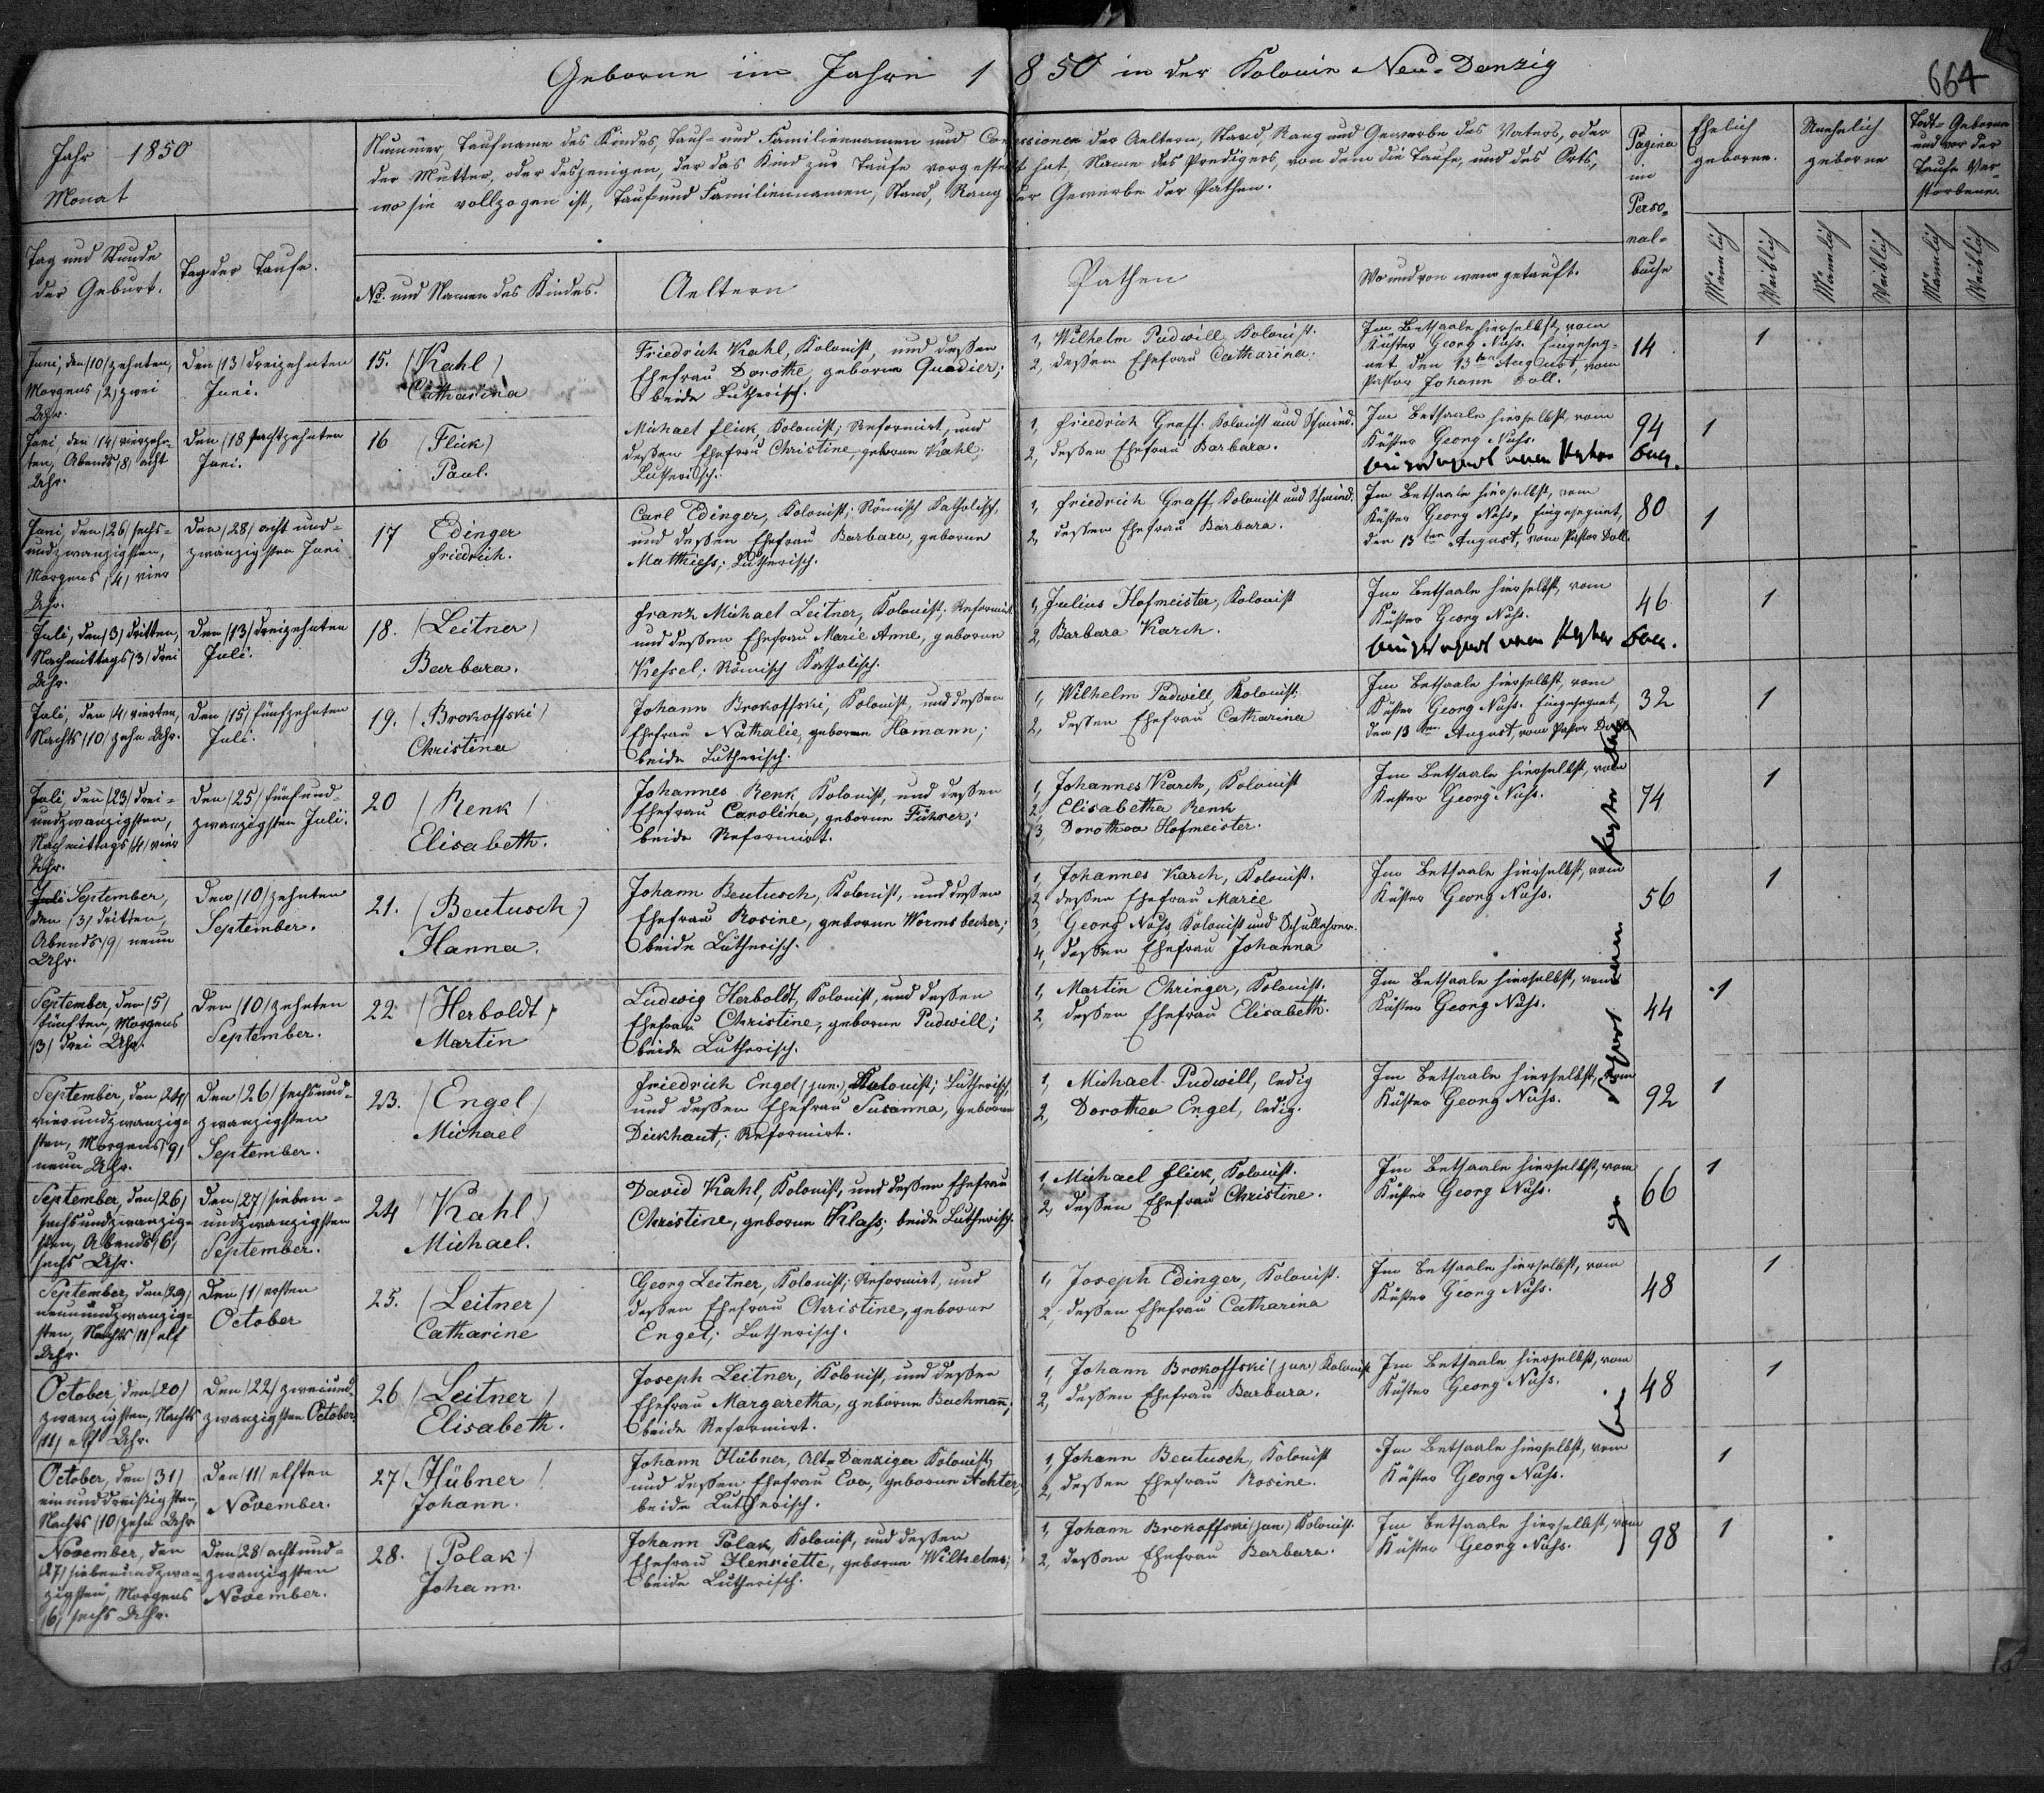 Geborne im Jahre 1850 in der Kolonie Neu-Danzig
664
Jahr 1850
Monat
Tag und Stunde
der Geburt.
Tag der Taufe.
Nummer, Taufname des Kindes, Tauf- und Familiennamen und Confessionen der Aeltern, Stand, Rang und Gewerbe des Vaters, oder
der Mutter, oder desjenigen, der das Kind zur Taufe vorgestellt hat, Name des Predigers, von dem die Taufe, und des Orts,
wo sie vollzogen ist, Tauf- und Familiennamen, Stand, Rang oder Gewerbe der Pathen.
No. und Namen des Kindes.
Aeltern
Pathen
Wo und von wem getauft.
Pagina
im
Perso-
nal-
buche
Ehelich
geborne.
Unehelich
geborne
Todt-Geborne
und vor der
Taufe Ver-
storbene.
Männlich
Weiblich
Männlich
Weiblich
Männlich
Weiblich
Juni, den /10/ zehnten,
Morgens /2/ zwei
Uhr.
Den /13/ dreizehnten
Juni.
15. /Kahl/
Catharina
Friedrich Kahl, Kolonist, und dessen
Ehefrau Dorothe, geborne Quadier;
beide Lutherisch.
1, Wilhelm Pudwill, Kolonist.
2, dessen Ehefrau Catharina.
Im Betsaale hierselbst, vom
Küster Georg Nuhs. Eingeseg-
net, den 13ten August, vom
Pastor Johann Doll.
14
1
Juni, den /14/ vierzehn-
ten, Abends /8/ acht
Uhr.
Den /18/ achtzehnten
Juni.
16 /Flick/
Paul.
Michael Flick, Kolonist; Reformirt, und
dessen Ehefrau Christine, geborne Kahl;
Lutherisch.
1, Friedrich Graff. Kolonist und Schmied.
2, dessen Ehefrau Barbara.
Im Betsaale hierselbst, vom
Küster Georg Nuhs.
vom Pastor Doll.
94
1
Juni, den /26/ sechs-
undzwanzigsten,
Morgens /4/ vier
Uhr.
Den /28/ acht und-
zwanzigsten Juni
17 Edinger
Friedrich.
Carl Edinger, Kolonist; Römisch Katholisch,
und dessen Ehefrau Barbara, geborne
Matthiehs; Lutherisch.
1, Friedrich Graff Kolonist und Schmied.
2, dessen Ehefrau Barbara.
Im Betsaale hierselbst, vom
Küster Georg Nuhs. Eingesegnet,
den 13ten August, vom Pastor Doll.
80
1
Juli, den /3/ dritten,
Nachmittags /3/ drei
Uhr.
Den /13/ dreizehnten
Juli.
18. /Leitner/
Barbara.
Franz Michael Leitner, Kolonist; Reformirt
und dessen Ehefrau Marie Anne, geborne
Kessel; Römisch Katholisch.
1, Julius Hofmeister, Kolonist
2, Barbara Karch.
Im Betsaale hierselbst, vom
Küster Georg Nuhs.
vom Pastor Doll.
46
1
Juli, den /4/ vierten,
Nachts /10/ zehn Uhr.
Den /15/ fünfzehnten
Juli.
19. /Brokoffski/
Christina
Johann Brokoffski, Kolonist, und dessen
Ehefrau Nathalie, geborne Hamann;
beide Lutherisch.
1, Wilhelm Pudwill, Kolonist.
2, dessen Ehefrau Catharina
Im Betsaale hierselbst, vom
Küster Georg Nuhs. Eingesegnet,
den 13ten August, vom Pastor Doll.
32
1
Juli, den /23/ drei-
undzwanzigsten,
Nachmittags /4/ vier
Uhr.
Den /25/ fünfund-
zwanzigsten Juli.
20 /Renk/
Elisabeth.
Johannes Renk, Kolonist, und dessen
Ehefrau Carolina, geborne Führer;
beide Reformirt.
1, Johannes Karch, Kolonist
2, Elisabetha Renk
3, Dorothea Hofmeister.
Im Betsaale hierselbst, vom
Küster Georg Nuhs.
74
1
Juli September,
den /3/ dritten,
Abends /9/ neun
Uhr.
Den /10/ zehnten
September.
21. /Beutusch/
Hanna.
Johann Beutusch, Kolonist, und dessen
Ehefrau Rosine, geborne Wormsbecher;
beide Lutherisch.
1, Johannes Karch, Kolonist.
2, dessen Ehefrau Marie
3, Georg Nuhs, Kolonist und Schullehrer.
4, dessen Ehefrau Johanna
Im Betsaale hierselbst, vom
Küster Georg Nuhs.
56
1
September, den /5/
fünften, Morgens
/3/ drei Uhr.
Den /10/ zehnten
September.
22. /Herboldt/
Martin
Ludwig Herboldt, Kolonist, und dessen
Ehefrau Christine, geborne Pudwill;
beide Lutherisch.
1, Martin Ehringer, Kolonist.
2, dessen Ehefrau Elisabeth.
Im Betsaale hierselbst, vom
Küster Georg Nuhs.
44
1
September, den /24/
vierundzwanzig-
sten, Morgens /9/
neun Uhr.
Den /26/ sechsund-
zwanzigsten
September.
23. /Engel/
Michael
Friedrich Engel (jun.) Kolonist; Lutherisch,
und dessen Ehefrau Susanna, geborne
Dickhaut; Reformirt.
1, Michael Pudwill, ledig
2, Dorothea Engel, ledig.
Im Betsaale hierselbst, vom
Küster Georg Nuhs.
92
1
September, den /26/
sechsundzwanzig-
sten, Abends /6/
sechs Uhr.
Den /27/ sieben-
undzwanzigsten
September.
24 /Kahl/
Michael.
David Kahl, Kolonist, und dessen Ehefrau
Christine, geborne Klass; beide Lutherisch.
1, Michael Flick, Kolonist.
2, dessen Ehefrau Christine.
Im Betsaale hierselbst, vom
Küster Georg Nuhs.
66
1
September, den /29/
neunundzwanzig-
sten, Nachts /11/ elf
Uhr.
Den /1/ ersten
October
25. /Leitner/
Catharine
Georg Leitner, Kolonist; Reformirt, und
dessen Ehefrau Christine, geborne
Engel; Lutherisch.
1, Joseph Edinger, Kolonist.
2, dessen Ehefrau Catharina
Im Betsaale hierselbst, vom
Küster Georg Nuhs.
48
1
October, den /20/
zwanzigsten, Nachts
/11/ elf Uhr.
Den /22/ zweiund-
zwanzigsten October.
26 /Leitner/
Elisabeth.
Joseph Leitner, Kolonist, und dessen
Ehefrau Margaretha, geborne Bachmann;
beide Reformirt.
1, Johann Brokoffski (jun.) Kolonist
2, dessen Ehefrau Barbara.
Im Betsaale hierselbst, vom
Küster Georg Nuhs.
48
1
October, den /31/
einunddreißigsten,
Nachts /10/ zehn Uhr
Den /11/ elften
November.
27 /Hübner/
Johann.
Johann Hübner, Alt-Danziger Kolonist,
und dessen Ehefrau Eva, geborne Achter,
beide Lutherisch.
1, Johann Beutusch, Kolonist
2, dessen Ehefrau Rosine.
Im Betsaale hierselbst, vom
Küster Georg Nuhs.
1
November, den
/27/ siebenundzwan-
zigsten, Morgens
/6/ sechs Uhr.
Den /28/ achtund-
zwanzigsten
November.
28. /Polak/
Johann.
Johann Polak, Kolonist, und dessen
Ehefrau Henriette, geborne Wilhelms;
beide Lutherisch.
1, Johann Brokoffski (jun.) Kolonist.
2, dessen Ehefrau Barbara.
Im Betsaale hierselbst, vom
Küster Georg Nuhs.
98
1